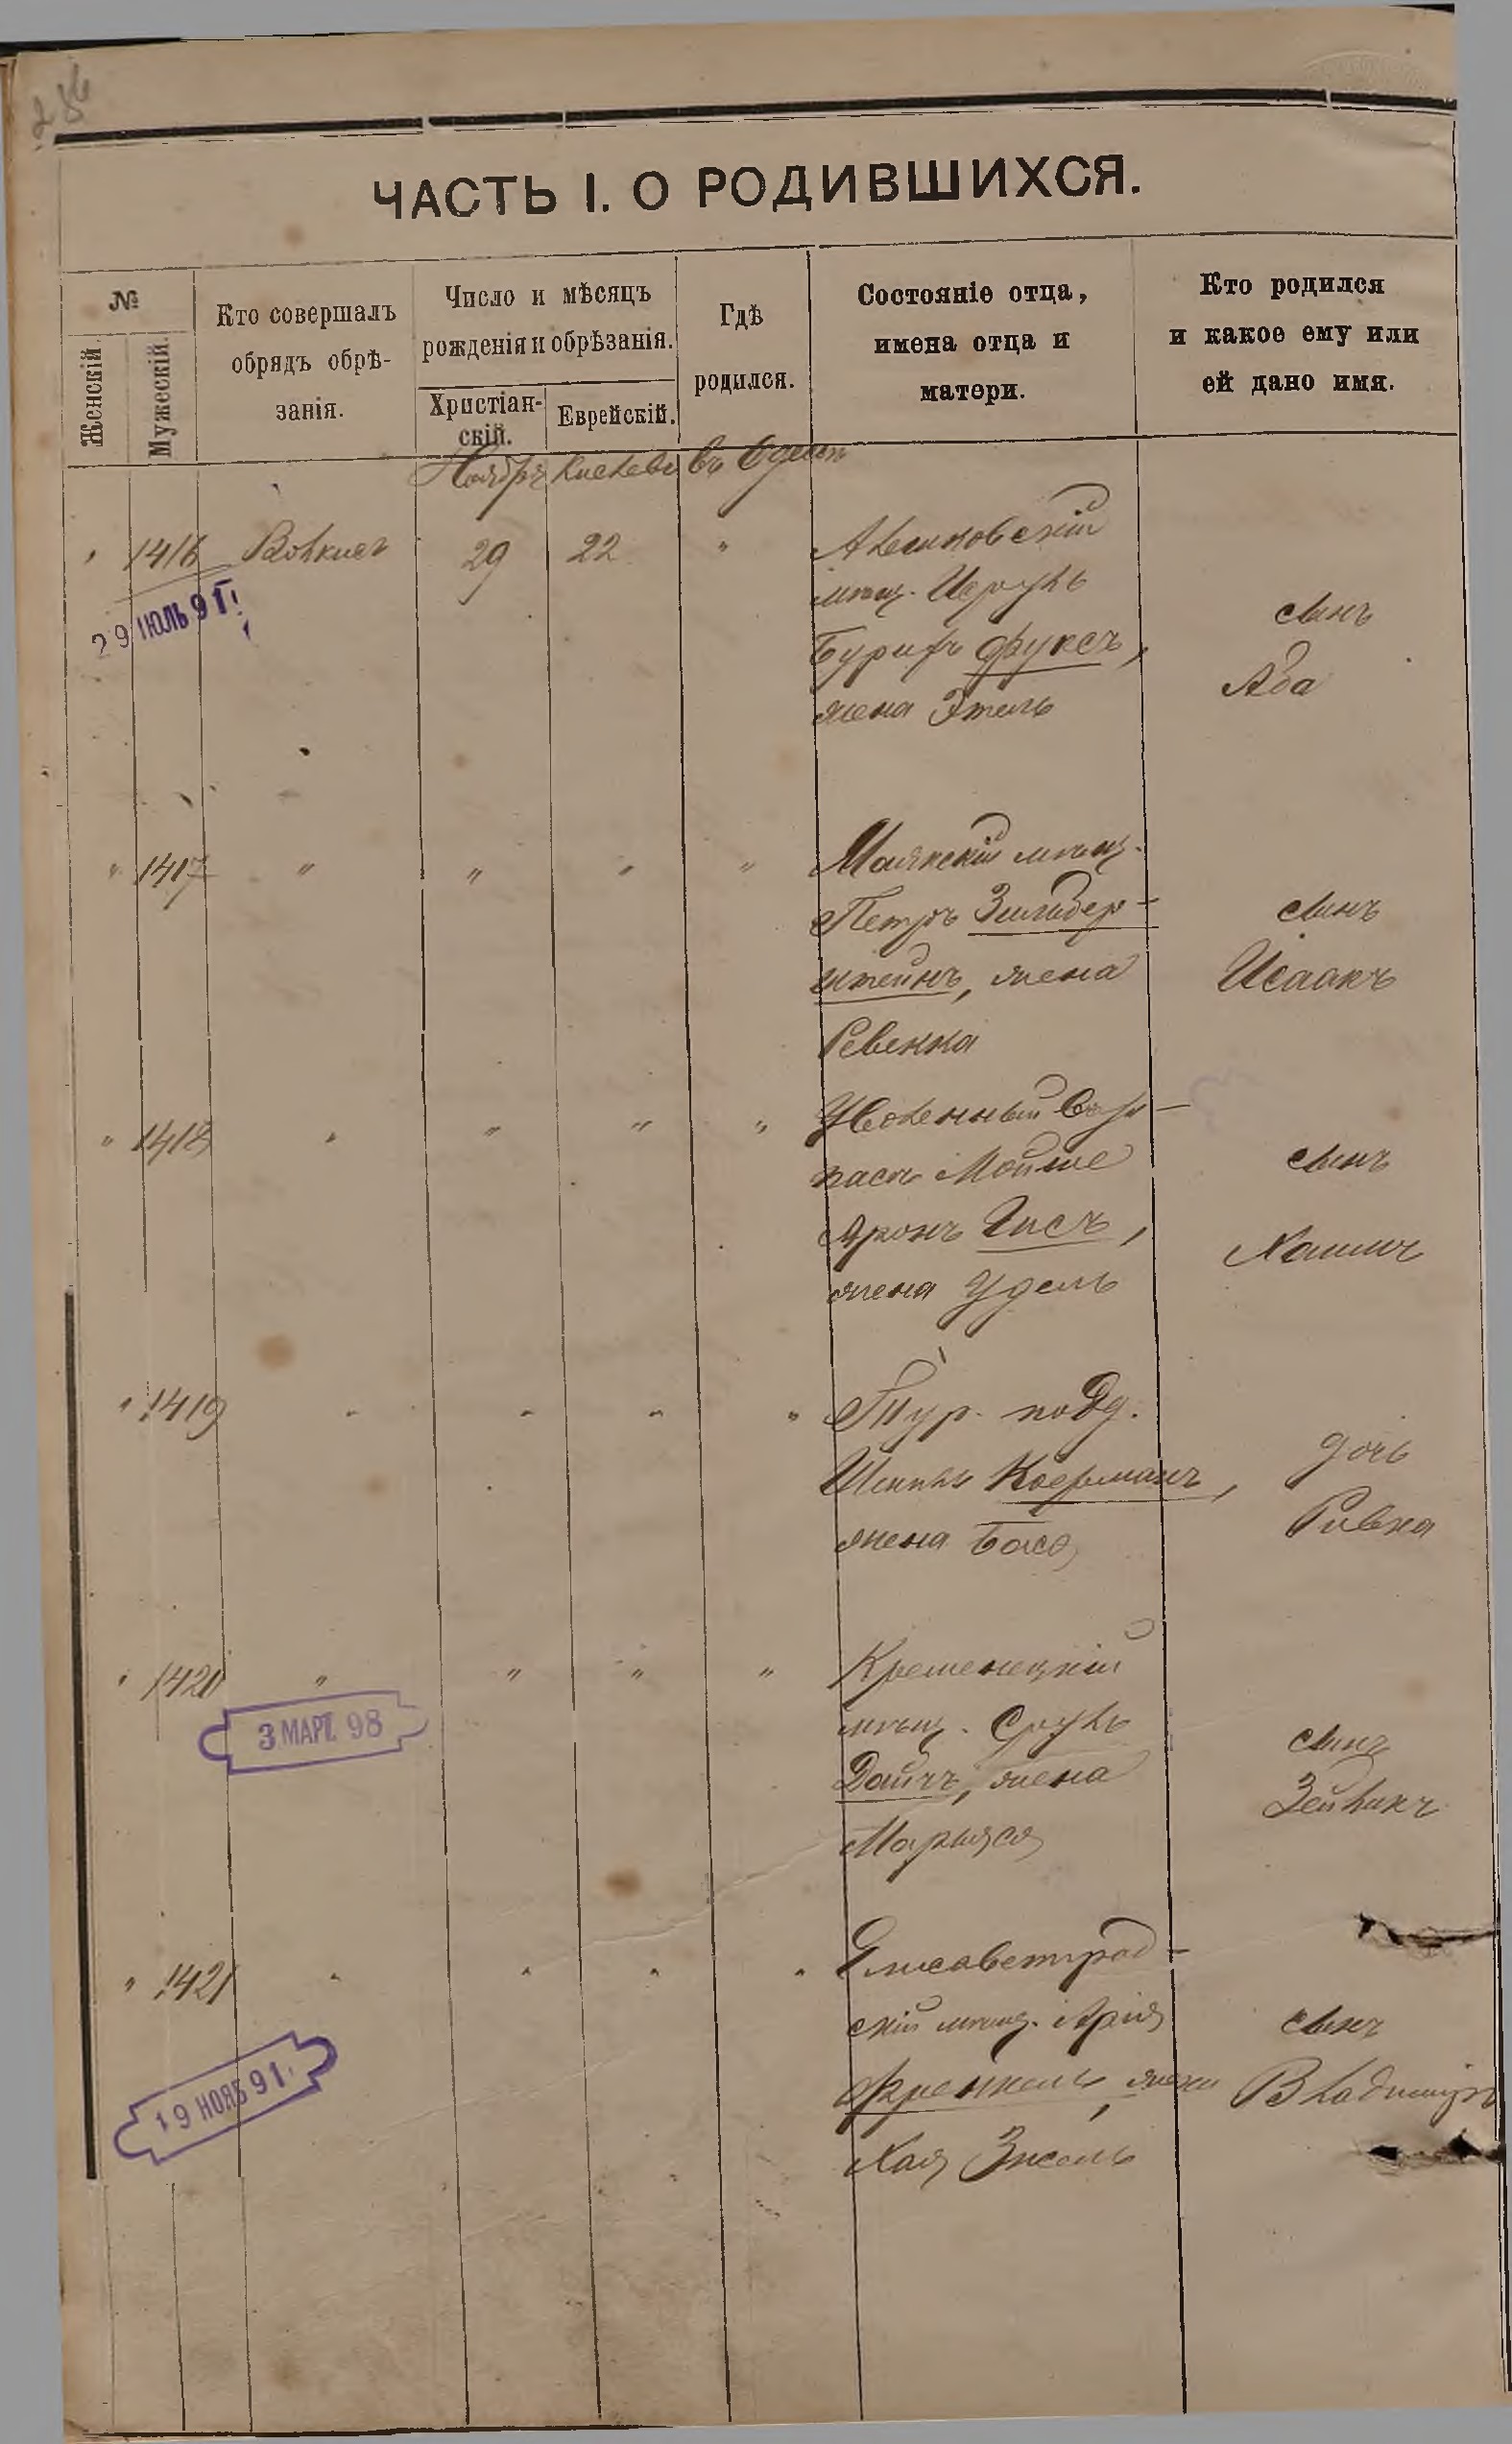 286
ЧАСТЬ І. О РОДИВШИХСЯ.
№
Женскій.
Мужескій.
Кто совершалъ
обрядъ обрѣ-
занія.
Число и мѣсяцъ
рожденія и обрѣзанія.
Христіан-
скій.
Еврейскій.
Гдѣ
родился.
Состояніе отца,
имена отца и
матери.
Кто родился
и какое ему или
ей дано имя.
Ноября Кислева въ Одессѣ
" 1416 29 22 "
мѣщ. Исрулъ
Фуксъ,
жена Этель
сынъ
Аба
29 ІЮЛЬ 91 г.
" 1417 " " " "
Маякскій мѣщ.
Петръ Зильбер-
штейнъ, жена
Ревекка
сынъ
Исаакъ
" 1418 " " " "
Уволенный
Мойше
Аронъ Гисъ,
жена Удель
сынъ
Хаимъ
" 1419 " " " "
Тур. подд.
Коерманъ,
жена Бася
дочь
Ривка
" 1420 " " " "
Кременецкій
мѣщ. Сруль
Дайчъ, жена
Марьяся
сынъ
Зейликъ
3 МАРТ. 98
" 1421 " " " "
Елисаветград-
скій мѣщ. Арія
Френкель, жена
Хая Зисель
сынъ
Владиміръ
19 НОЯБ 91.